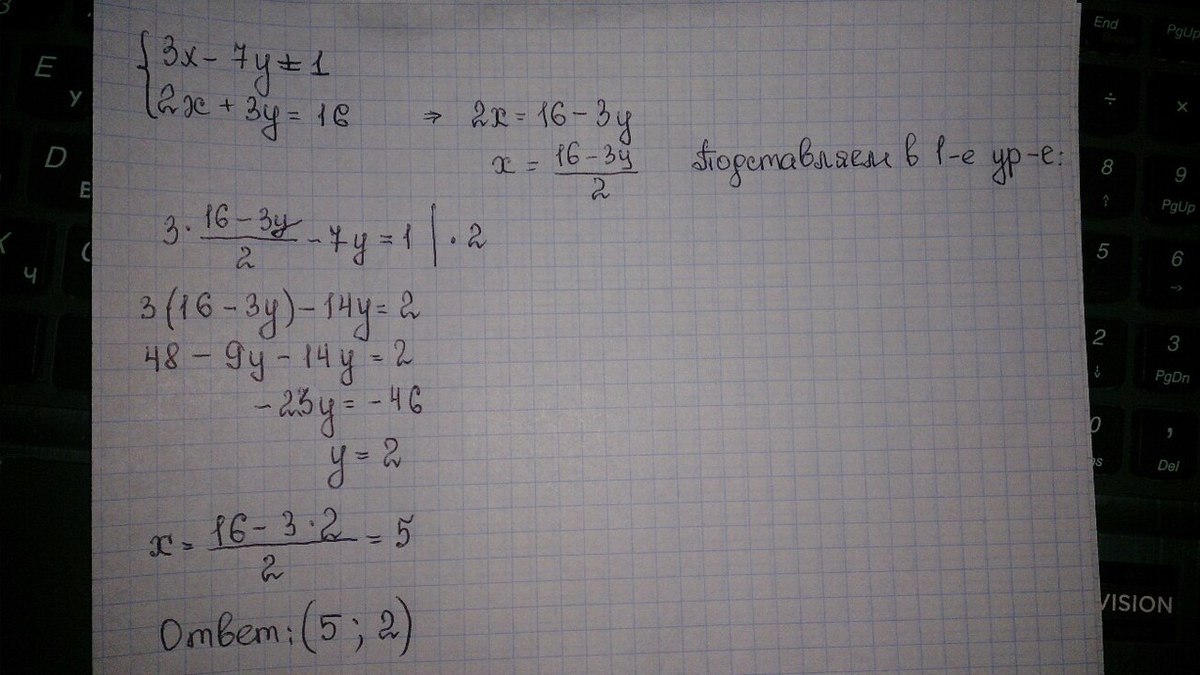 {3x - 7y = 1
2x + 3y = 16 ⇒ 2x = 16 - 3y
x = (16 - 3y)/2 Подставляем в 1-е ур-е:
3 · (16 - 3y)/2 - 7y = 1 | · 2
3(16 - 3y) - 14y = 2
48 - 9y - 14y = 2
-23y = -46
y = 2
x = (16 - 3 · 2)/2 = 5
Ответ: (5 ; 2)
E
У
D
В
Ч
End
PgUp
÷
×
8
↑
9
PgUp
5
6
→
2
↓
3
PgDn
0
ns
,
Del
VISION